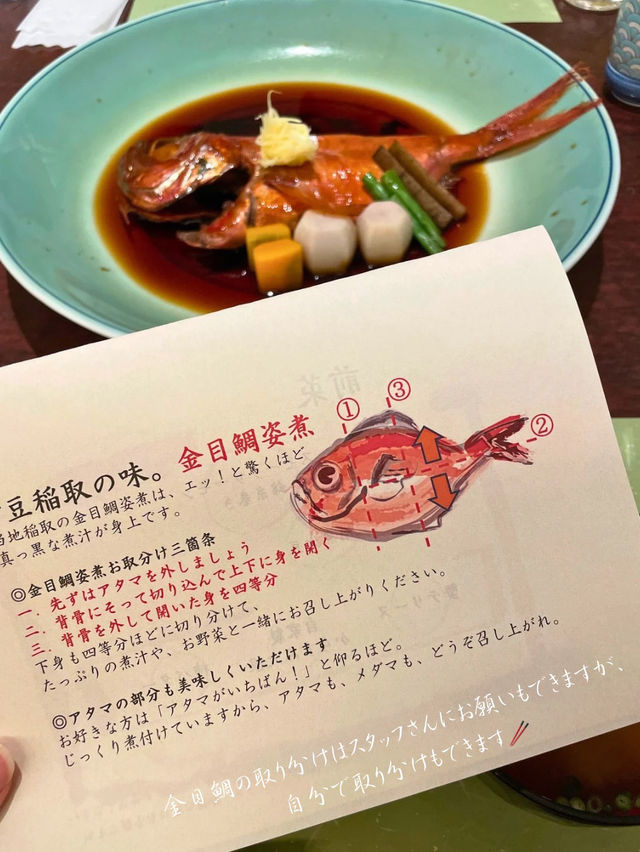 豆稲取の味。金目鯛姿煮
当地稲取の金目鯛姿煮は、エッ！と驚くほど
真っ黒な煮汁が身上です。
◎金目鯛姿煮お取分け三箇条
一．先ずはアタマを外しましょう
二．背骨にそって切り込んで上下に身を開く
三．背骨を外して開いた身を四等分
下身も四等分ほどに切り分けて、
たっぷりの煮汁や、お野菜と一緒にお召し上がりください。
◎アタマの部分も美味しくいただけます
お好きな方は「アタマがいちばん！」と仰るほど。
じっくり煮付けていますから、アタマも、メダマも、どうぞ召し上がれ。
①
③
②
金目鯛の取り分けはスタッフさんにお願いもできますが、
自分で取り分けもできます